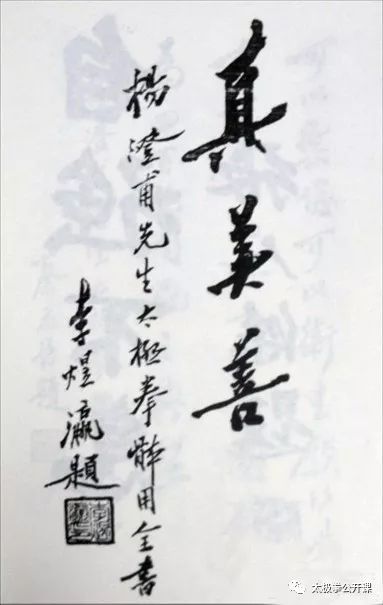 真美善
楊澄甫先生太極拳體用全書
李煜瀛題
太极拳公开课